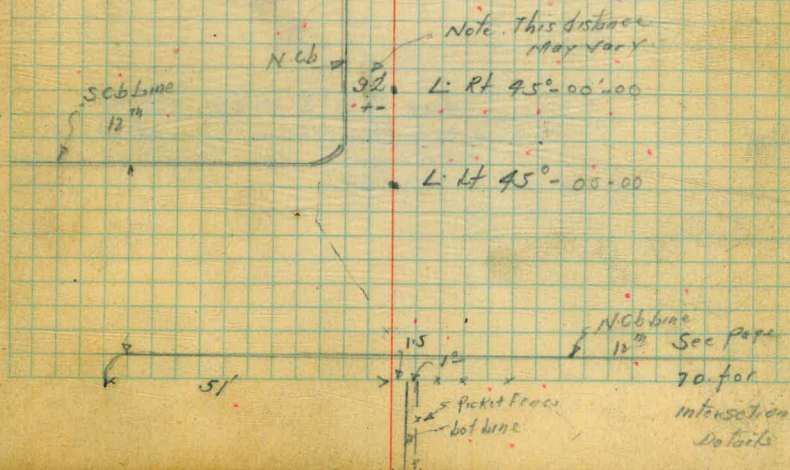 Note. This distance
May Vary.
N. Cb
92
+-
L. Rt 45°-00'-00
S Cb Line
12th
L. Lt 45°-00-00
N. Cb Line
12th
See page
70. for
Intersection
Details
1.5
1.0
51'
Picket Fence
Lot Line